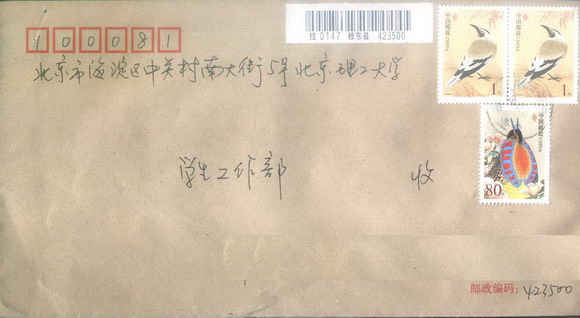 100081
挂 0147 桂东县 423500
北京市海淀区中关村南大街5号北京理工大学
学生工作部 收
中国邮政 CHINA
1元
中国邮政 CHINA
1元
中国邮政 CHINA
80分
邮政编码：423500